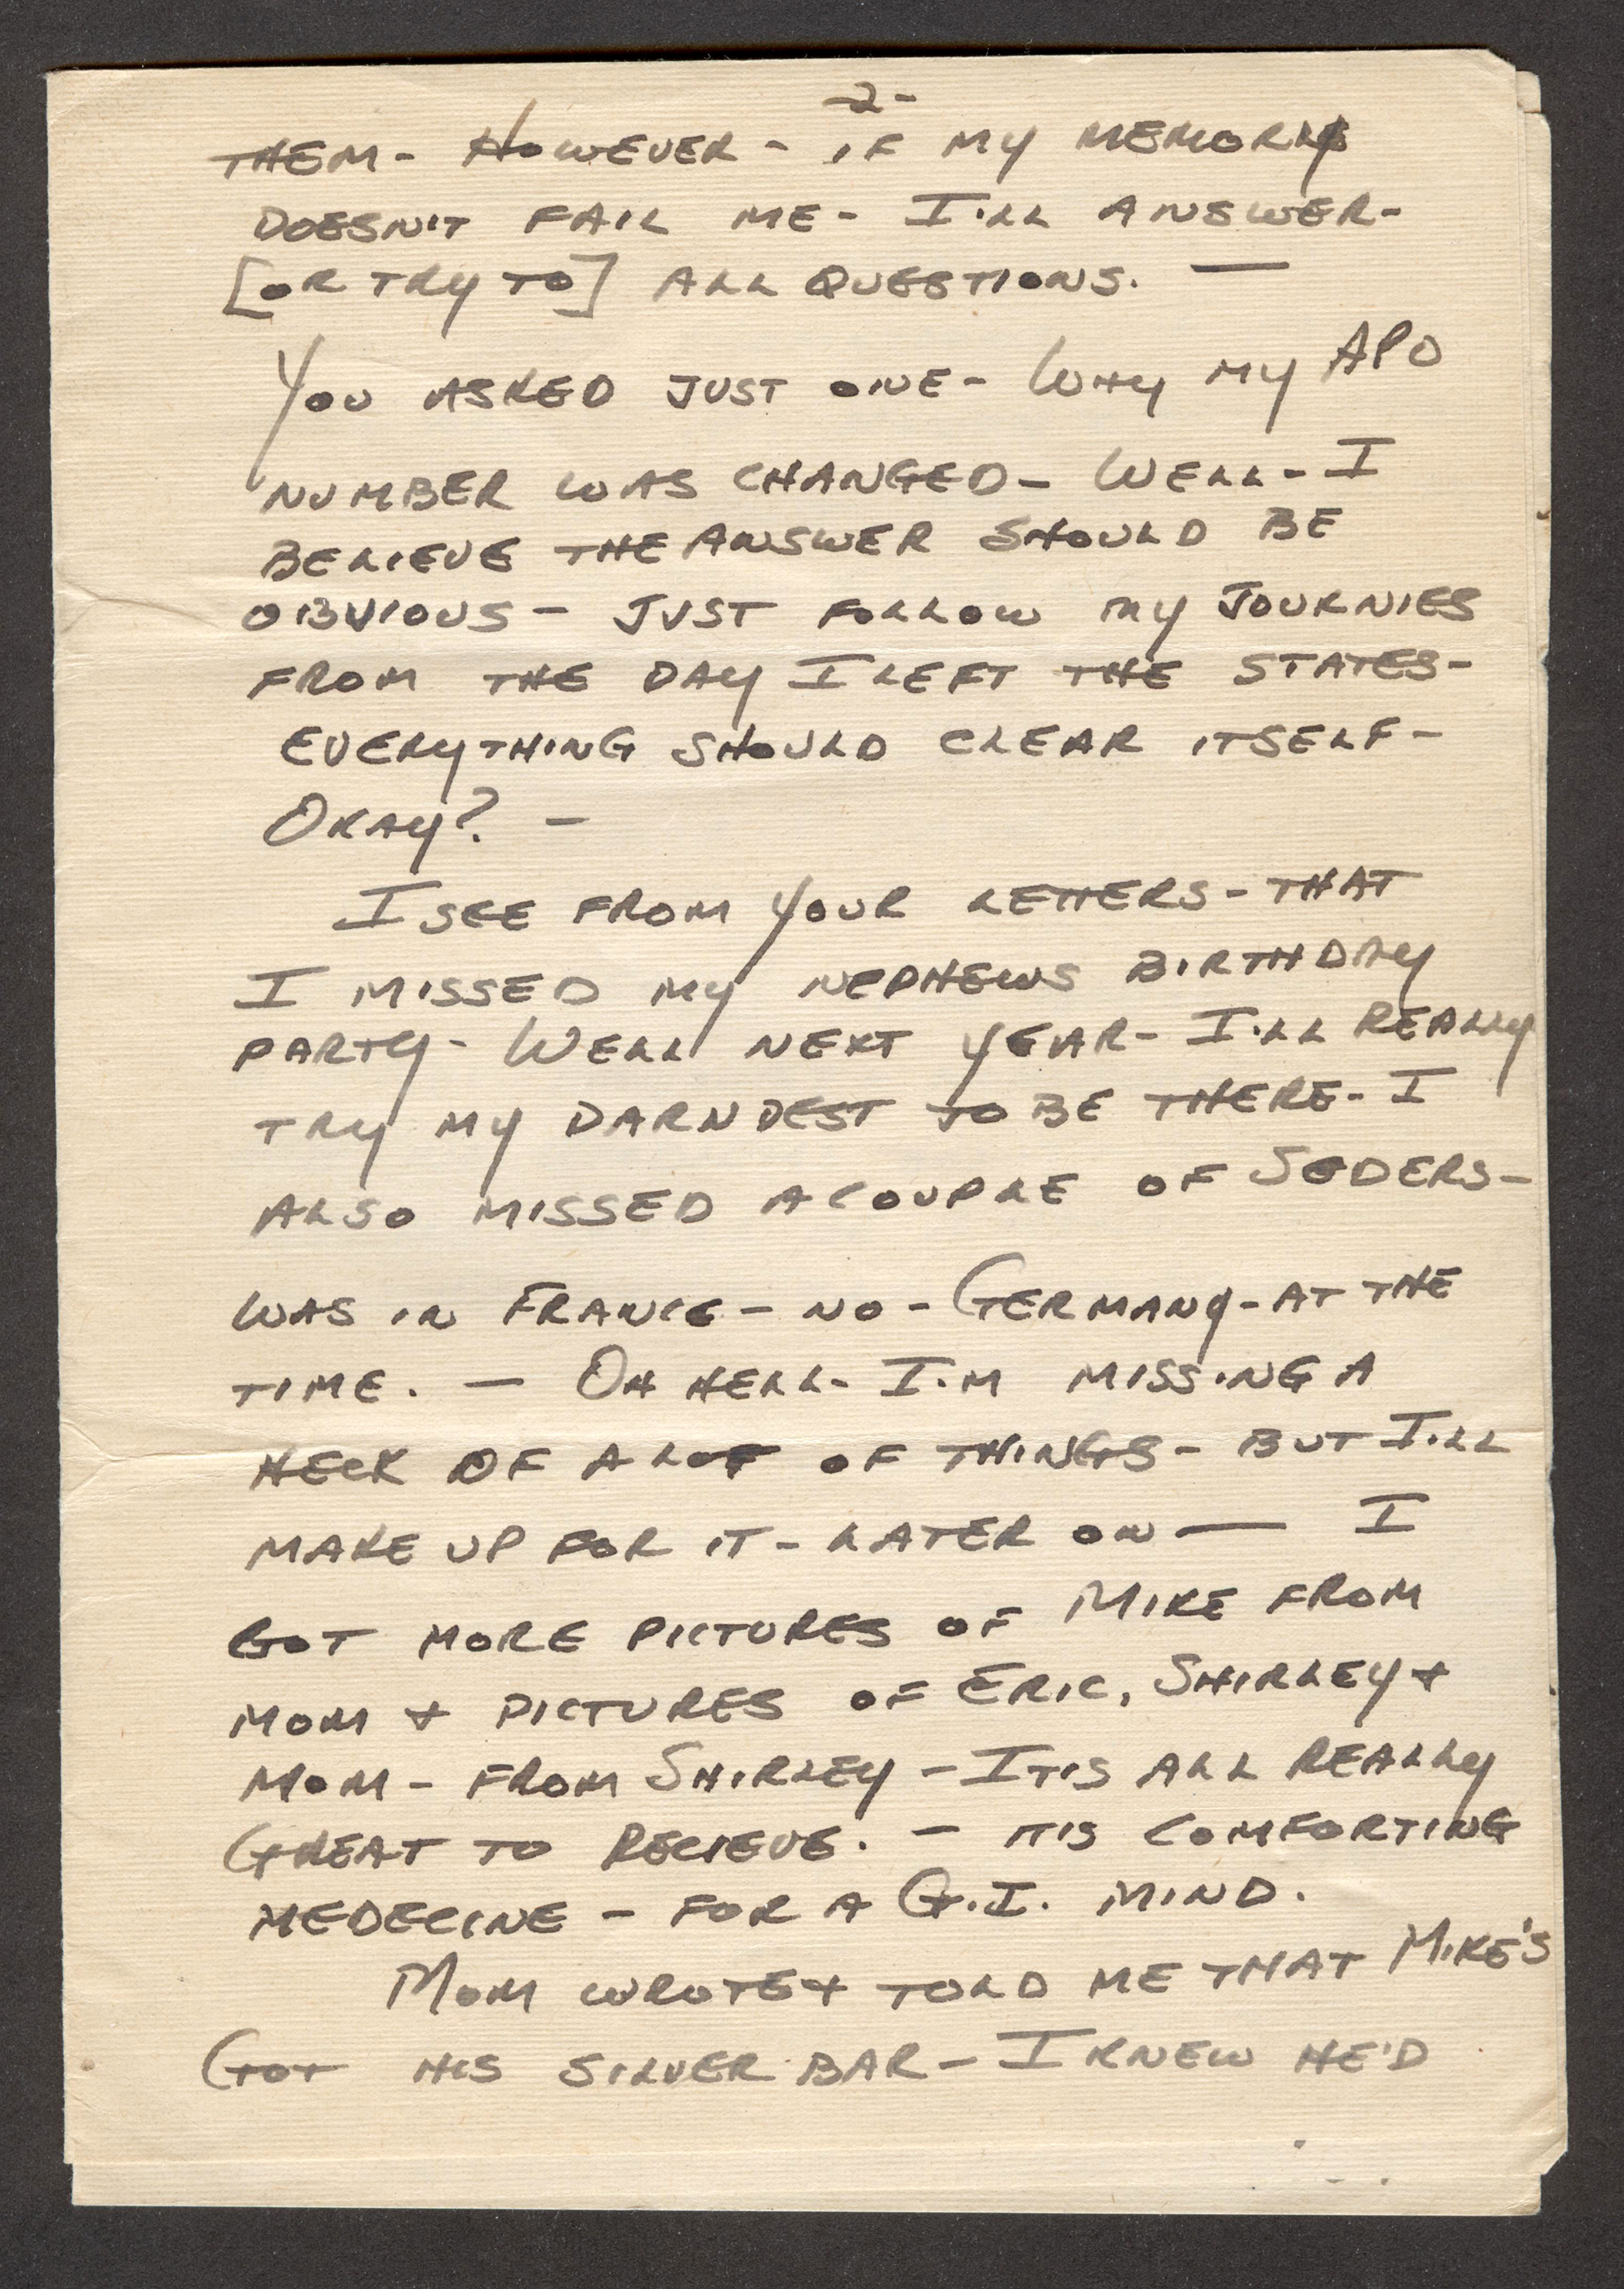 2-
THEM - HOWEVER - IF MY MEMORY
DOESN'T FAIL ME - I'LL ANSWER -
[OR TRY TO] ALL QUESTIONS. —
YOU ASKED JUST ONE - WHY MY APO
NUMBER WAS CHANGED - WELL - I
BELIEVE THE ANSWER SHOULD BE
OBVIOUS - JUST FOLLOW MY JOURNIES
FROM THE DAY I LEFT THE STATES -
EVERYTHING SHOULD CLEAR ITSELF -
OKAY? -
I SEE FROM YOUR LETTERS - THAT
I MISSED MY NEPHEWS BIRTHDAY
PARTY - WELL NEXT YEAR - I'LL REALLY
TRY MY DARNDEST TO BE THERE - I
ALSO MISSED A COUPLE OF SEDERS -
WAS IN FRANCE - NO - GERMANY - AT THE
TIME. — OH HELL - I'M MISSING A
HECK OF A LOT OF THINGS - BUT I'LL
MAKE UP FOR IT - LATER ON — I
GOT MORE PICTURES OF MIKE FROM
MOM + PICTURES OF ERIC, SHIRLEY +
MOM - FROM SHIRLEY - IT'S ALL REALLY
GREAT TO RECIEVE. - IT'S COMFORTING
MEDECINE - FOR A G.I. MIND.
MOM WROTE + TOLD ME THAT MIKE'S
GOT HIS SILVER BAR - I KNEW HE'D